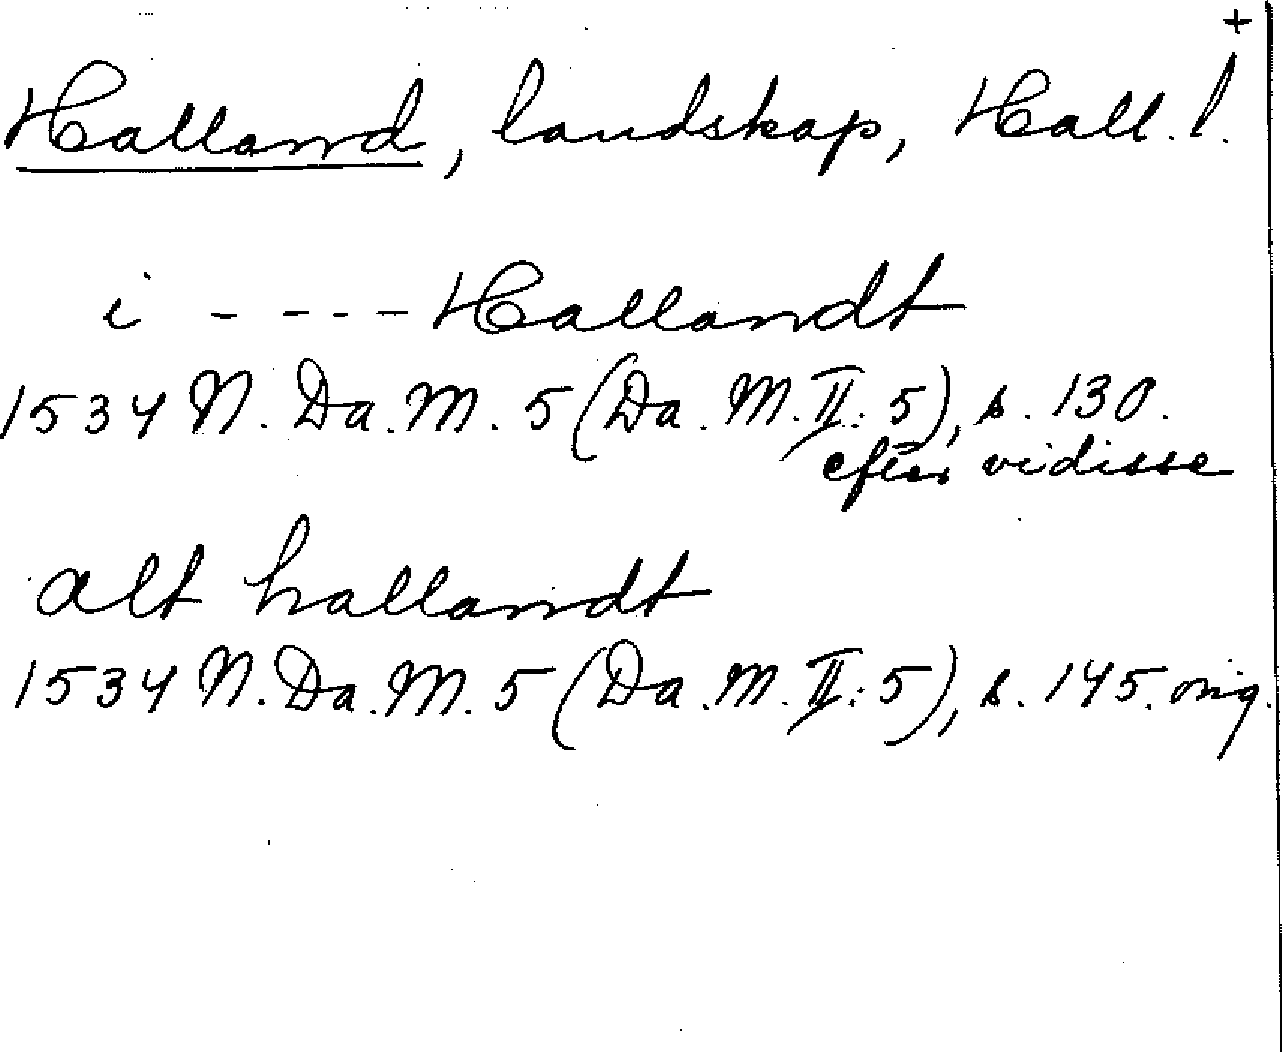 +
Halland, landskap, Hall. l.
i - - - - Hallandt
1534 N. Da. M. 5 (Da. M. II: 5), s. 130.
efter vidisse
alt hallandt
1534 N. Da. M. 5 (Da. M. II: 5), s. 145. orig.